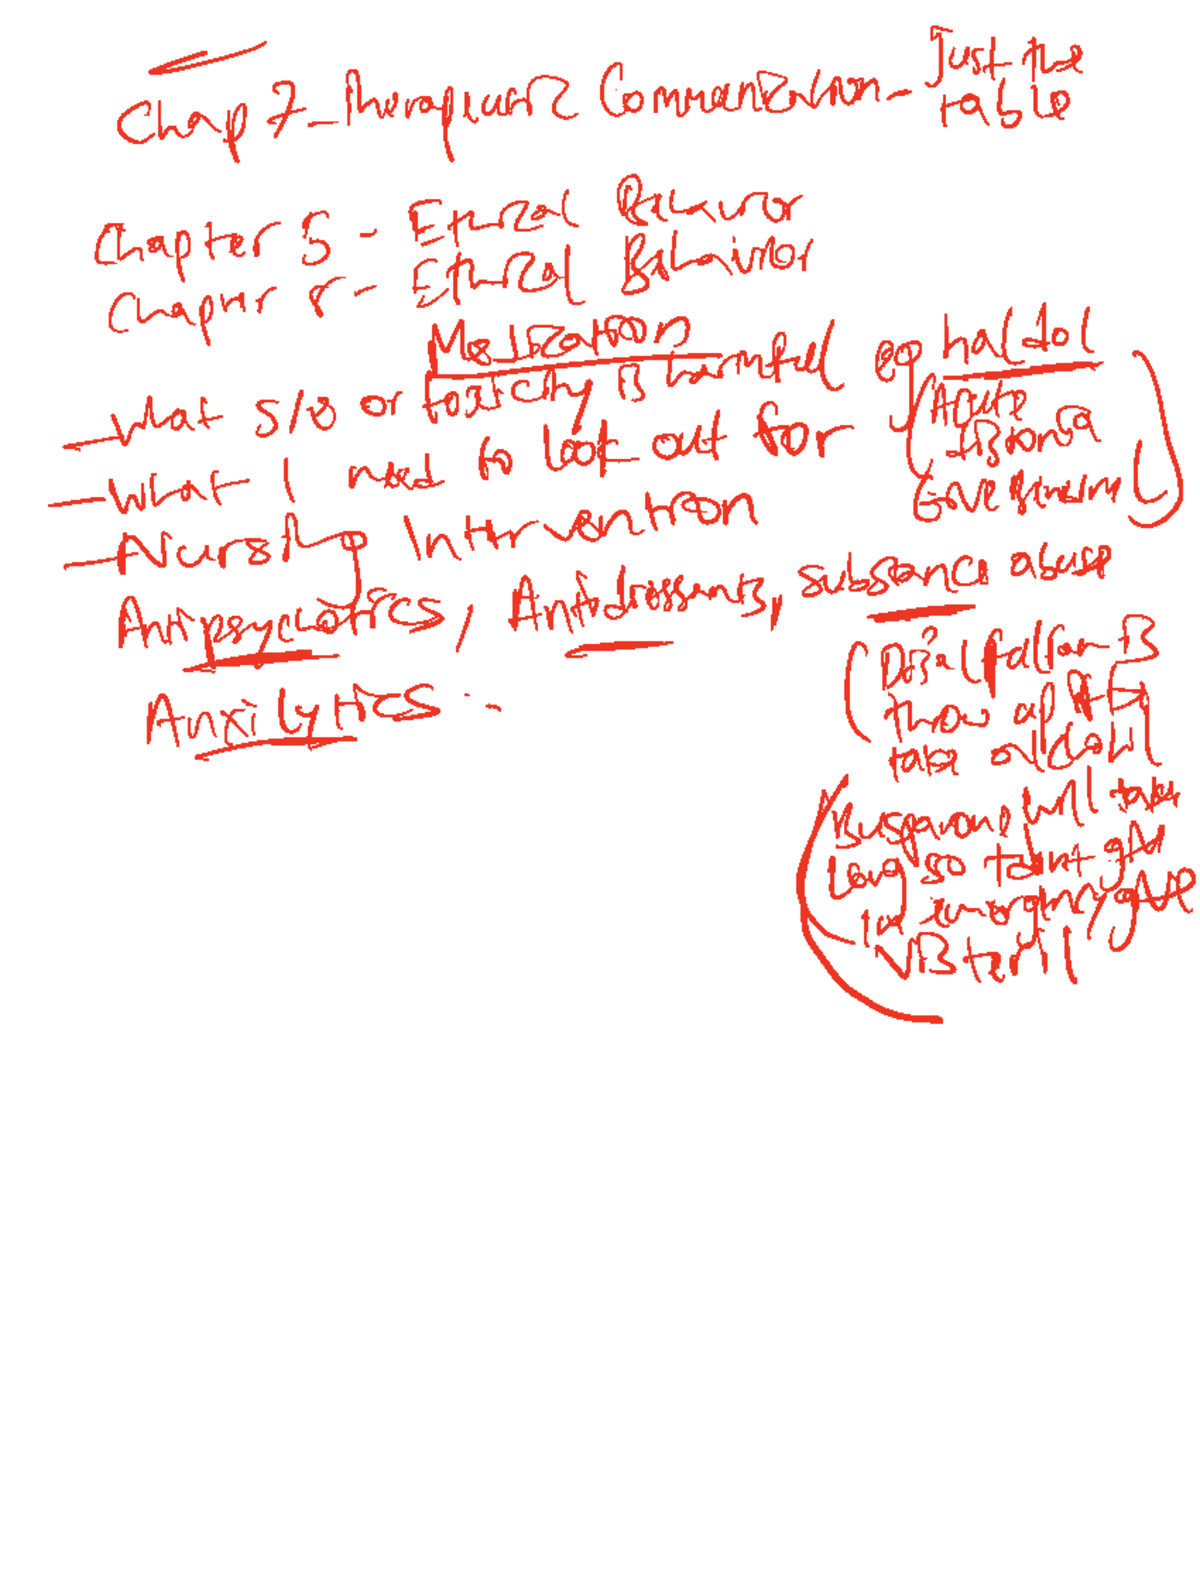 Chap 7 - Therapeutic Communication - Just the table
Chapter 5 - Ethical Behavior
Chapter 8 - Ethical Behavior
Medication
- What s/s or toxicity is harmful eg haldol
(Acute distonia
Give
- What I need to look out for
- Nursing Intervention
Antipsychotics, Antidressants, substance abuse
Anxilytics -
throw up if
take alcohol
Busparone will take
long so
in emergency give